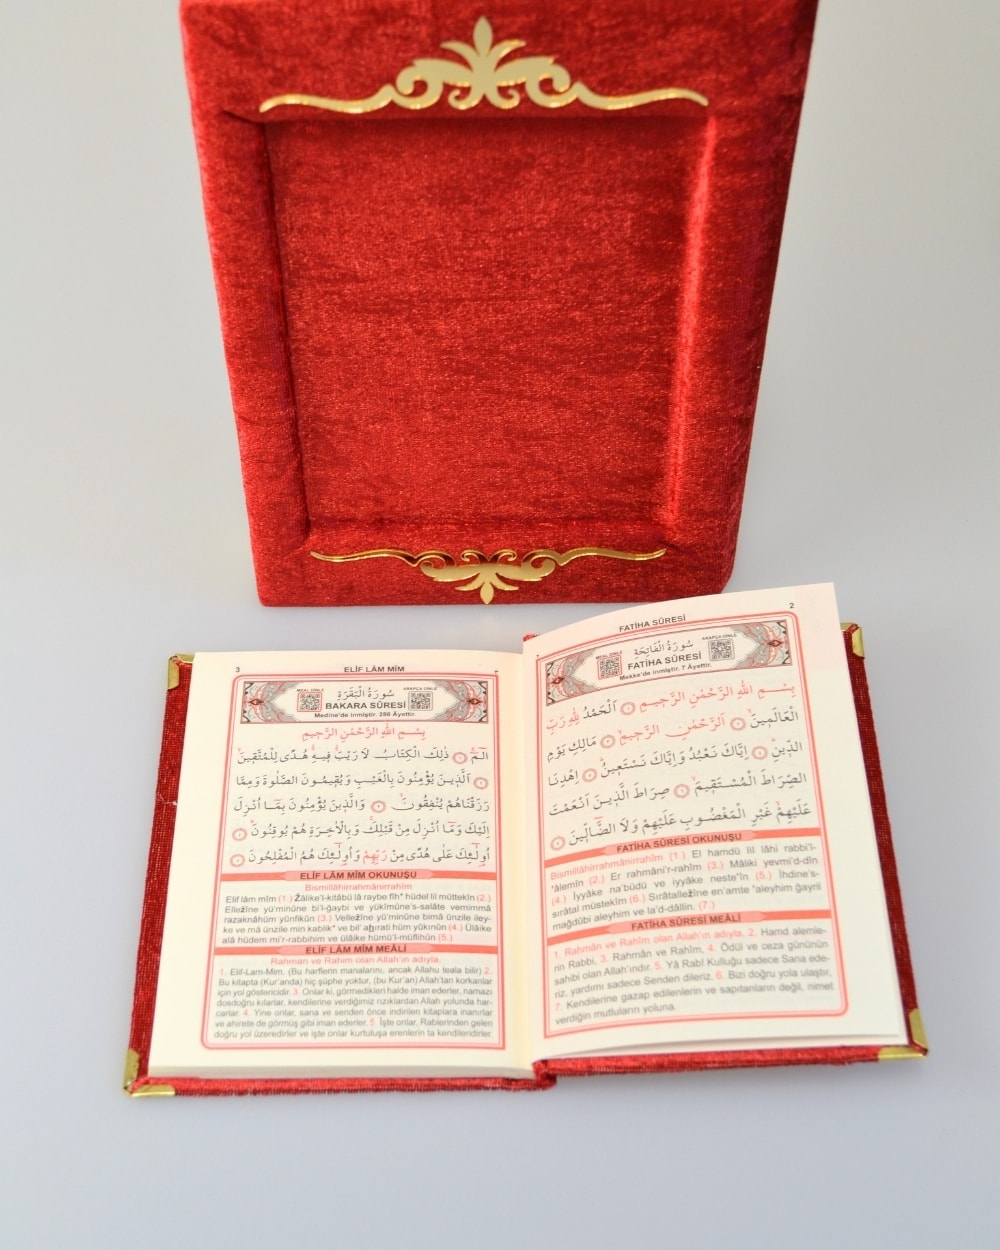 2
FATİHA SÛRESİ
MEAL DİNLE
سُورَةُ الْفَاتِحَةِ
ARAPÇA DİNLE
FATİHA SÛRESİ
Mekke'de inmiştir. 7 Âyettir.
بِسْمِ اللّٰهِ الرَّحْمٰنِ الرَّحِيمِ ١ اَلْحَمْدُ لِلّٰهِ رَبِّ
الْعَالَمِينَ ٢ اَلرَّحْمٰنِ الرَّحِيمِ ٣ مَالِكِ يَوْمِ
الدِّينِ ٤ اِيَّاكَ نَعْبُدُ وَاِيَّاكَ نَسْتَعِينُ ٥ اِهْدِنَا
الصِّرَاطَ الْمُسْتَقِيمَ ٦ صِرَاطَ الَّذِينَ اَنْعَمْتَ
عَلَيْهِمْ غَيْرِ الْمَغْضُوبِ عَلَيْهِمْ وَلَا الضَّالِّينَ ٧
FATİHA SÛRESİ OKUNUŞU
Bismillâhirrahmânirrahîm (1.) El hamdü lil lâhi rabbi'l-
'âlemîn (2.) Er rahmâni'r-rahîm (3.) Mâliki yevmi'd-dîn
(4.) İyyâke na'büdü ve iyyâke neste'în (5.) İhdine's-
sırâtal müstekîm (6.) Sırâtallezîne en'amte 'aleyhim ğayril
mağdûbi aleyhim ve la'd-dâllîn. (7.)
FATİHA SÛRESİ MEALİ
1. Rahmân ve Rahîm olan Allah'ın adıyla. 2. Hamd alemle-
rin Rabbi, 3. Rahmân ve Rahîm, 4. Ödül ve ceza gününün
sahibi olan Allah'ındır. 5. Yâ Rabî Kulluğu sadece Sana ede-
riz, yardımı sadece Senden dileriz. 6. Bizi doğru yola ulaştır,
7. Kendilerine gazap edilenlerin ve sapıtanların değil, nimet
verdiğin mutluların yoluna.
3
ELİF LÂM MÎM
MEAL DİNLE
سُورَةُ الْبَقَرَةِ
ARAPÇA DİNLE
BAKARA SÛRESİ
Medine'de inmiştir. 286 Âyettir.
بِسْمِ اللّٰهِ الرَّحْمٰنِ الرَّحِيمِ
الٓمٓ ١ ذٰلِكَ الْكِتَابُ لَا رَيْبَ فِيهِ هُدًى لِلْمُتَّقِينَ
٢ اَلَّذِينَ يُؤْمِنُونَ بِالْغَيْبِ وَيُقِيمُونَ الصَّلٰوةَ وَمِمَّا
رَزَقْنَاهُمْ يُنْفِقُونَ ٣ وَالَّذِينَ يُؤْمِنُونَ بِمَٓا اُنْزِلَ
اِلَيْكَ وَمَٓا اُنْزِلَ مِنْ قَبْلِكَ وَبِالْاٰخِرَةِ هُمْ يُوقِنُونَ ٤
اُو۬لٰٓئِكَ عَلٰى هُدًى مِنْ رَبِّهِمْ وَاُو۬لٰٓئِكَ هُمُ الْمُفْلِحُونَ ٥
ELİF LÂM MÎM OKUNUŞU
Bismillâhirrahmânirrahîm
Elif lâm mîm (1.) Zâlike'l-kitâbü lâ raybe fîh* hüdel lil müttekîn (2.)
Ellezîne yü'minûne bi'l-ğaybi ve yükîmûne's-salâte vemimmâ
razaknâhüm yünfikûn (3.) Vellezîne yü'minûne bimâ ünzile iley-
ke ve mâ ünzile min kablik* ve bil' ahırati hüm yûkınûn (4.) Ülâike
alâ hüdem mi'r-rabbihim ve ülâike hümü'l-müflihûn (5.)
ELİF LÂM MÎM MEÂLİ
Rahman ve Rahim olan Allah'ın adıyla.
1. Elif-Lam-Mim. (Bu harflerin manalarını, ancak Allahu teala bilir) 2.
Bu kitapta (Kur'anda) hiç şüphe yoktur, (bu Kur'an) Allah'tan korkanlar
için yol göstericidir. 3. Onlar ki, görmedikleri halde iman ederler, namazı
dosdoğru kılarlar, kendilerine verdiğimiz rızıklardan Allah yolunda har-
carlar. 4. Yine onlar, sana ve senden önce indirilen kitaplara inanırlar
ve ahirete de görmüş gibi iman ederler. 5. İşte onlar, Rablerinden gelen
doğru yol üzeredirler ve işte onlar kurtuluşa erenlerin ta kendileridirler.